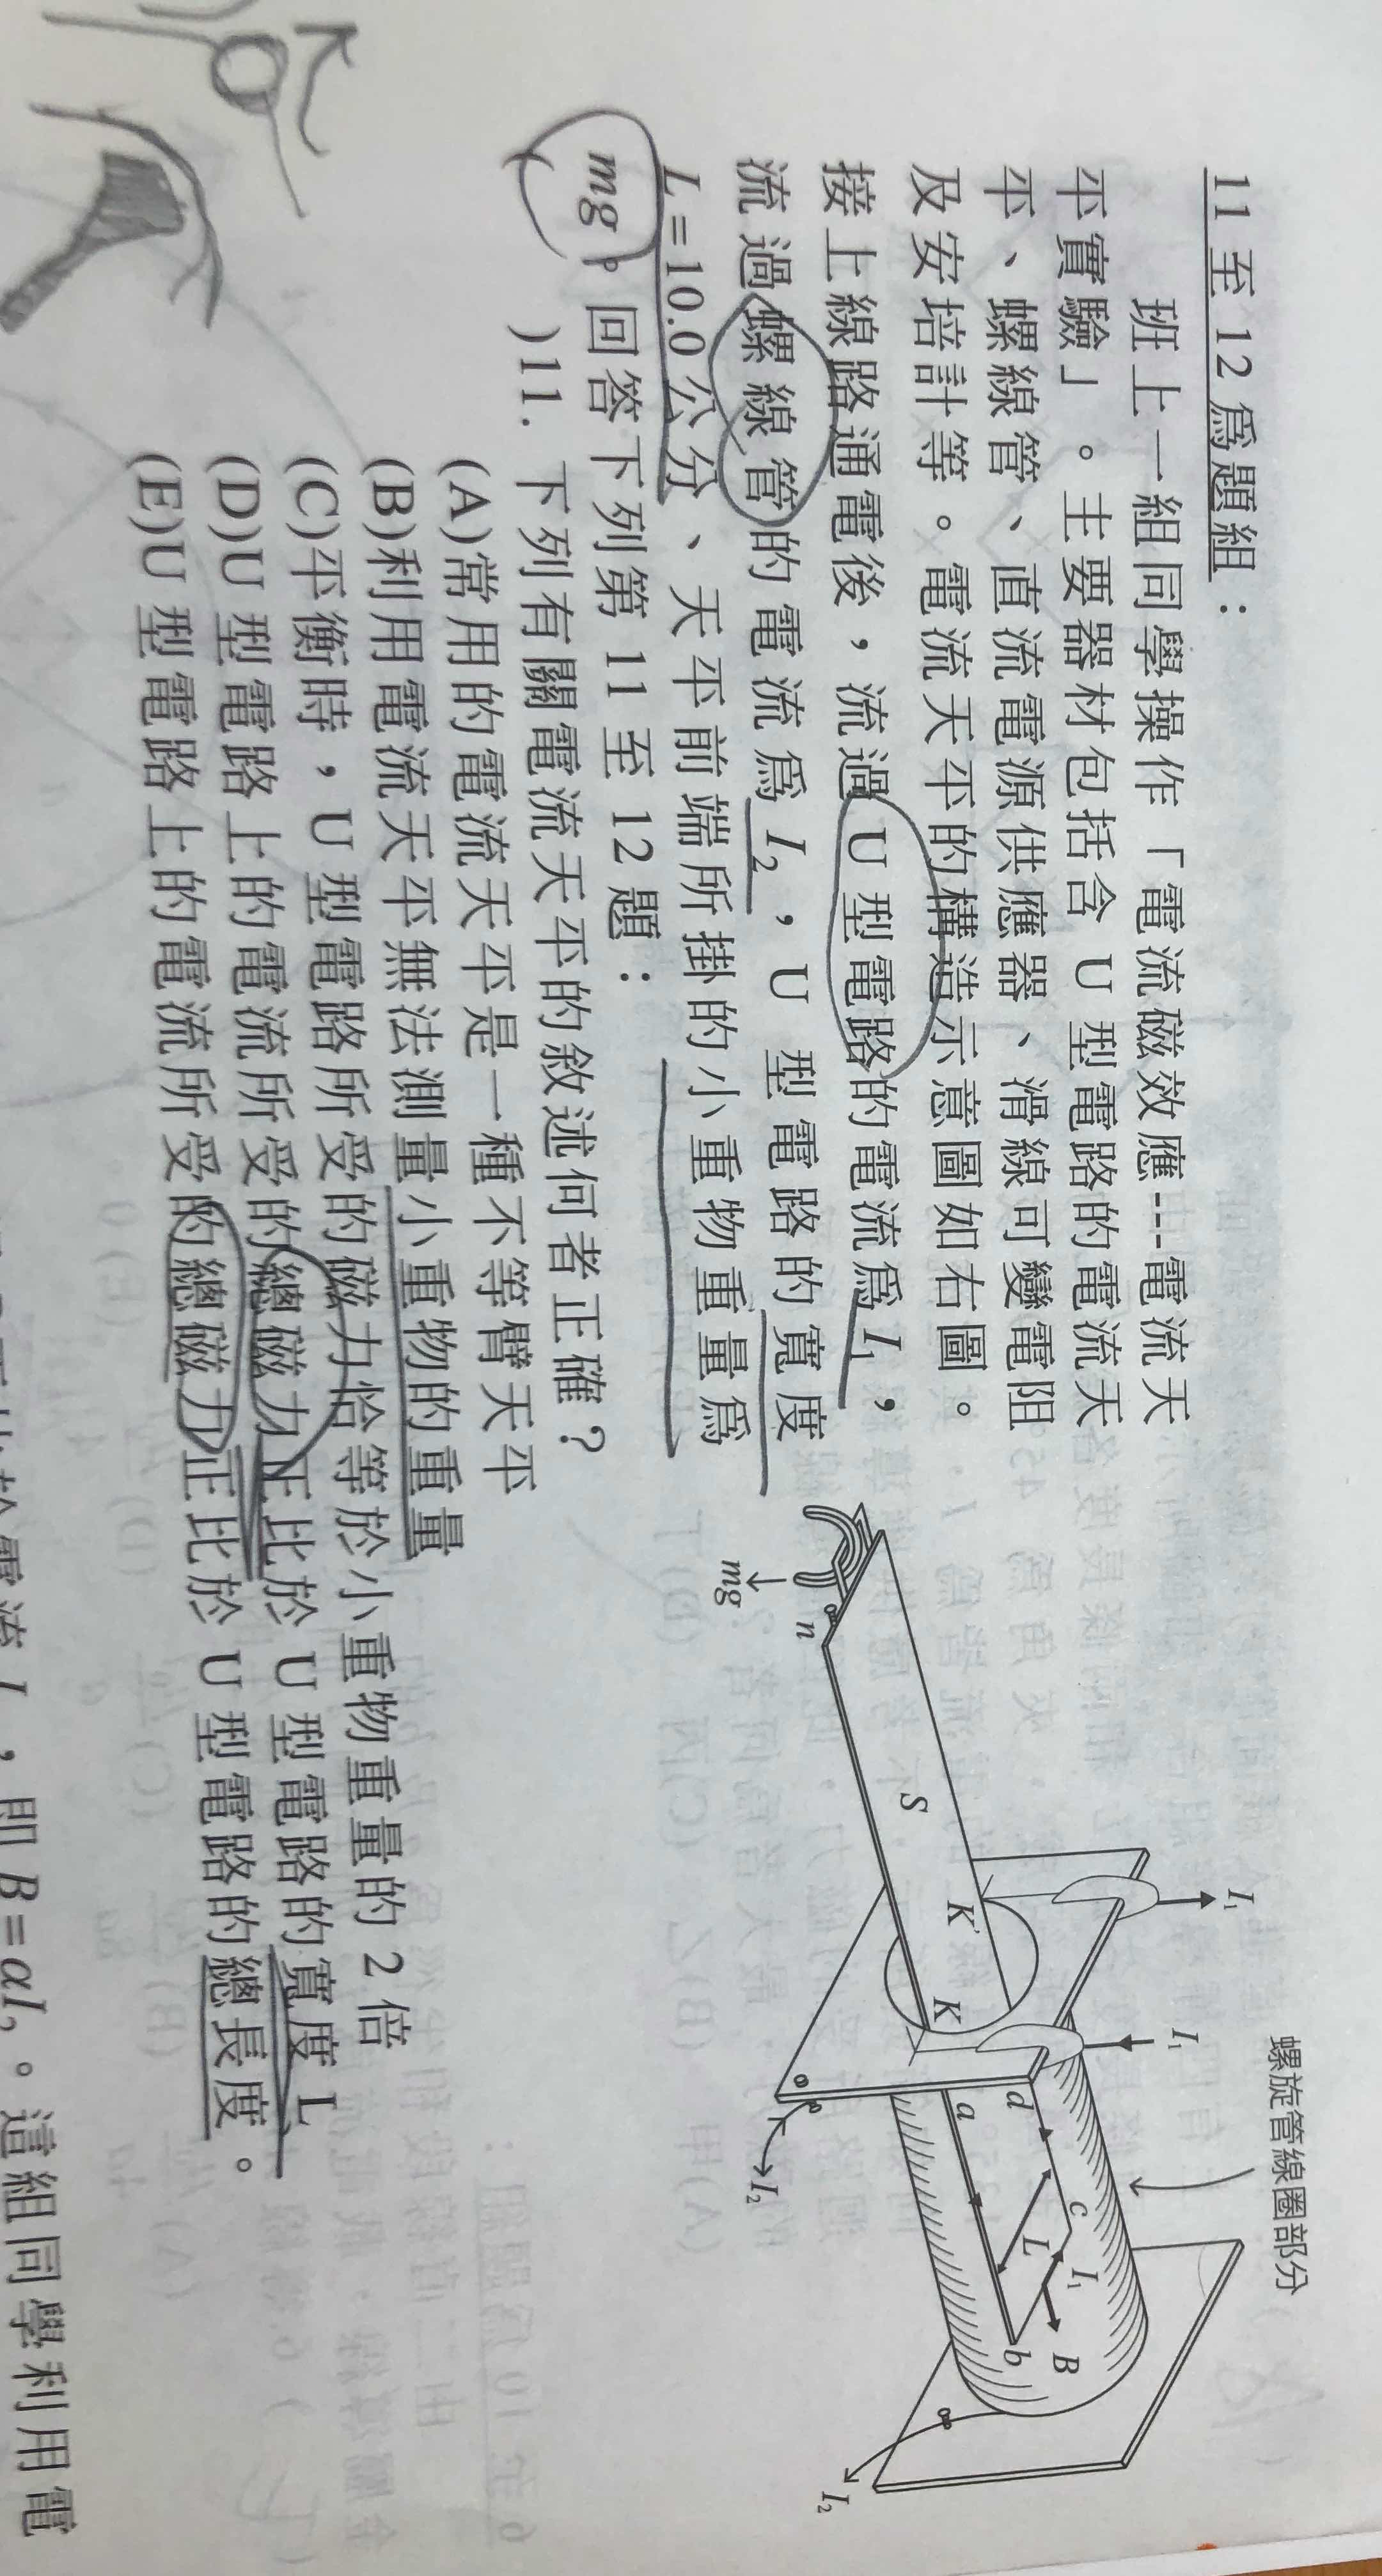 11 至 12 為題組：
班上一組同學操作「電流磁效應---電流天
平實驗」。主要器材包括含 U 型電路的電流天
平、螺線管、直流電源供應器、滑線可變電阻
及安培計等。電流天平的構造示意圖如右圖。
接上線路通電後，流過 U 型電路的電流為 I₁，
流過螺線管的電流為 I₂，U 型電路的寬度
L=10.0 公分、天平前端所掛的小重物重量為
mg。回答下列第 11 至 12 題：
)11. 下列有關電流天平的敘述何者正確？
(A)常用的電流天平是一種不等臂天平
(B)利用電流天平無法測量小重物的重量
(C)平衡時，U 型電路所受的磁力恰等於小重物重量的 2 倍
(D)U 型電路上的電流所受的總磁力正比於 U 型電路的寬度 L
(E)U 型電路上的電流所受的總磁力正比於 U 型電路的總長度。
螺旋管線圈部分
I₁
I₁
K'
K
S
n
mg
d
a
c
L
I₁
B
b
I₂
I₂
電流 I，即 B=αI₂。這組同學利用電